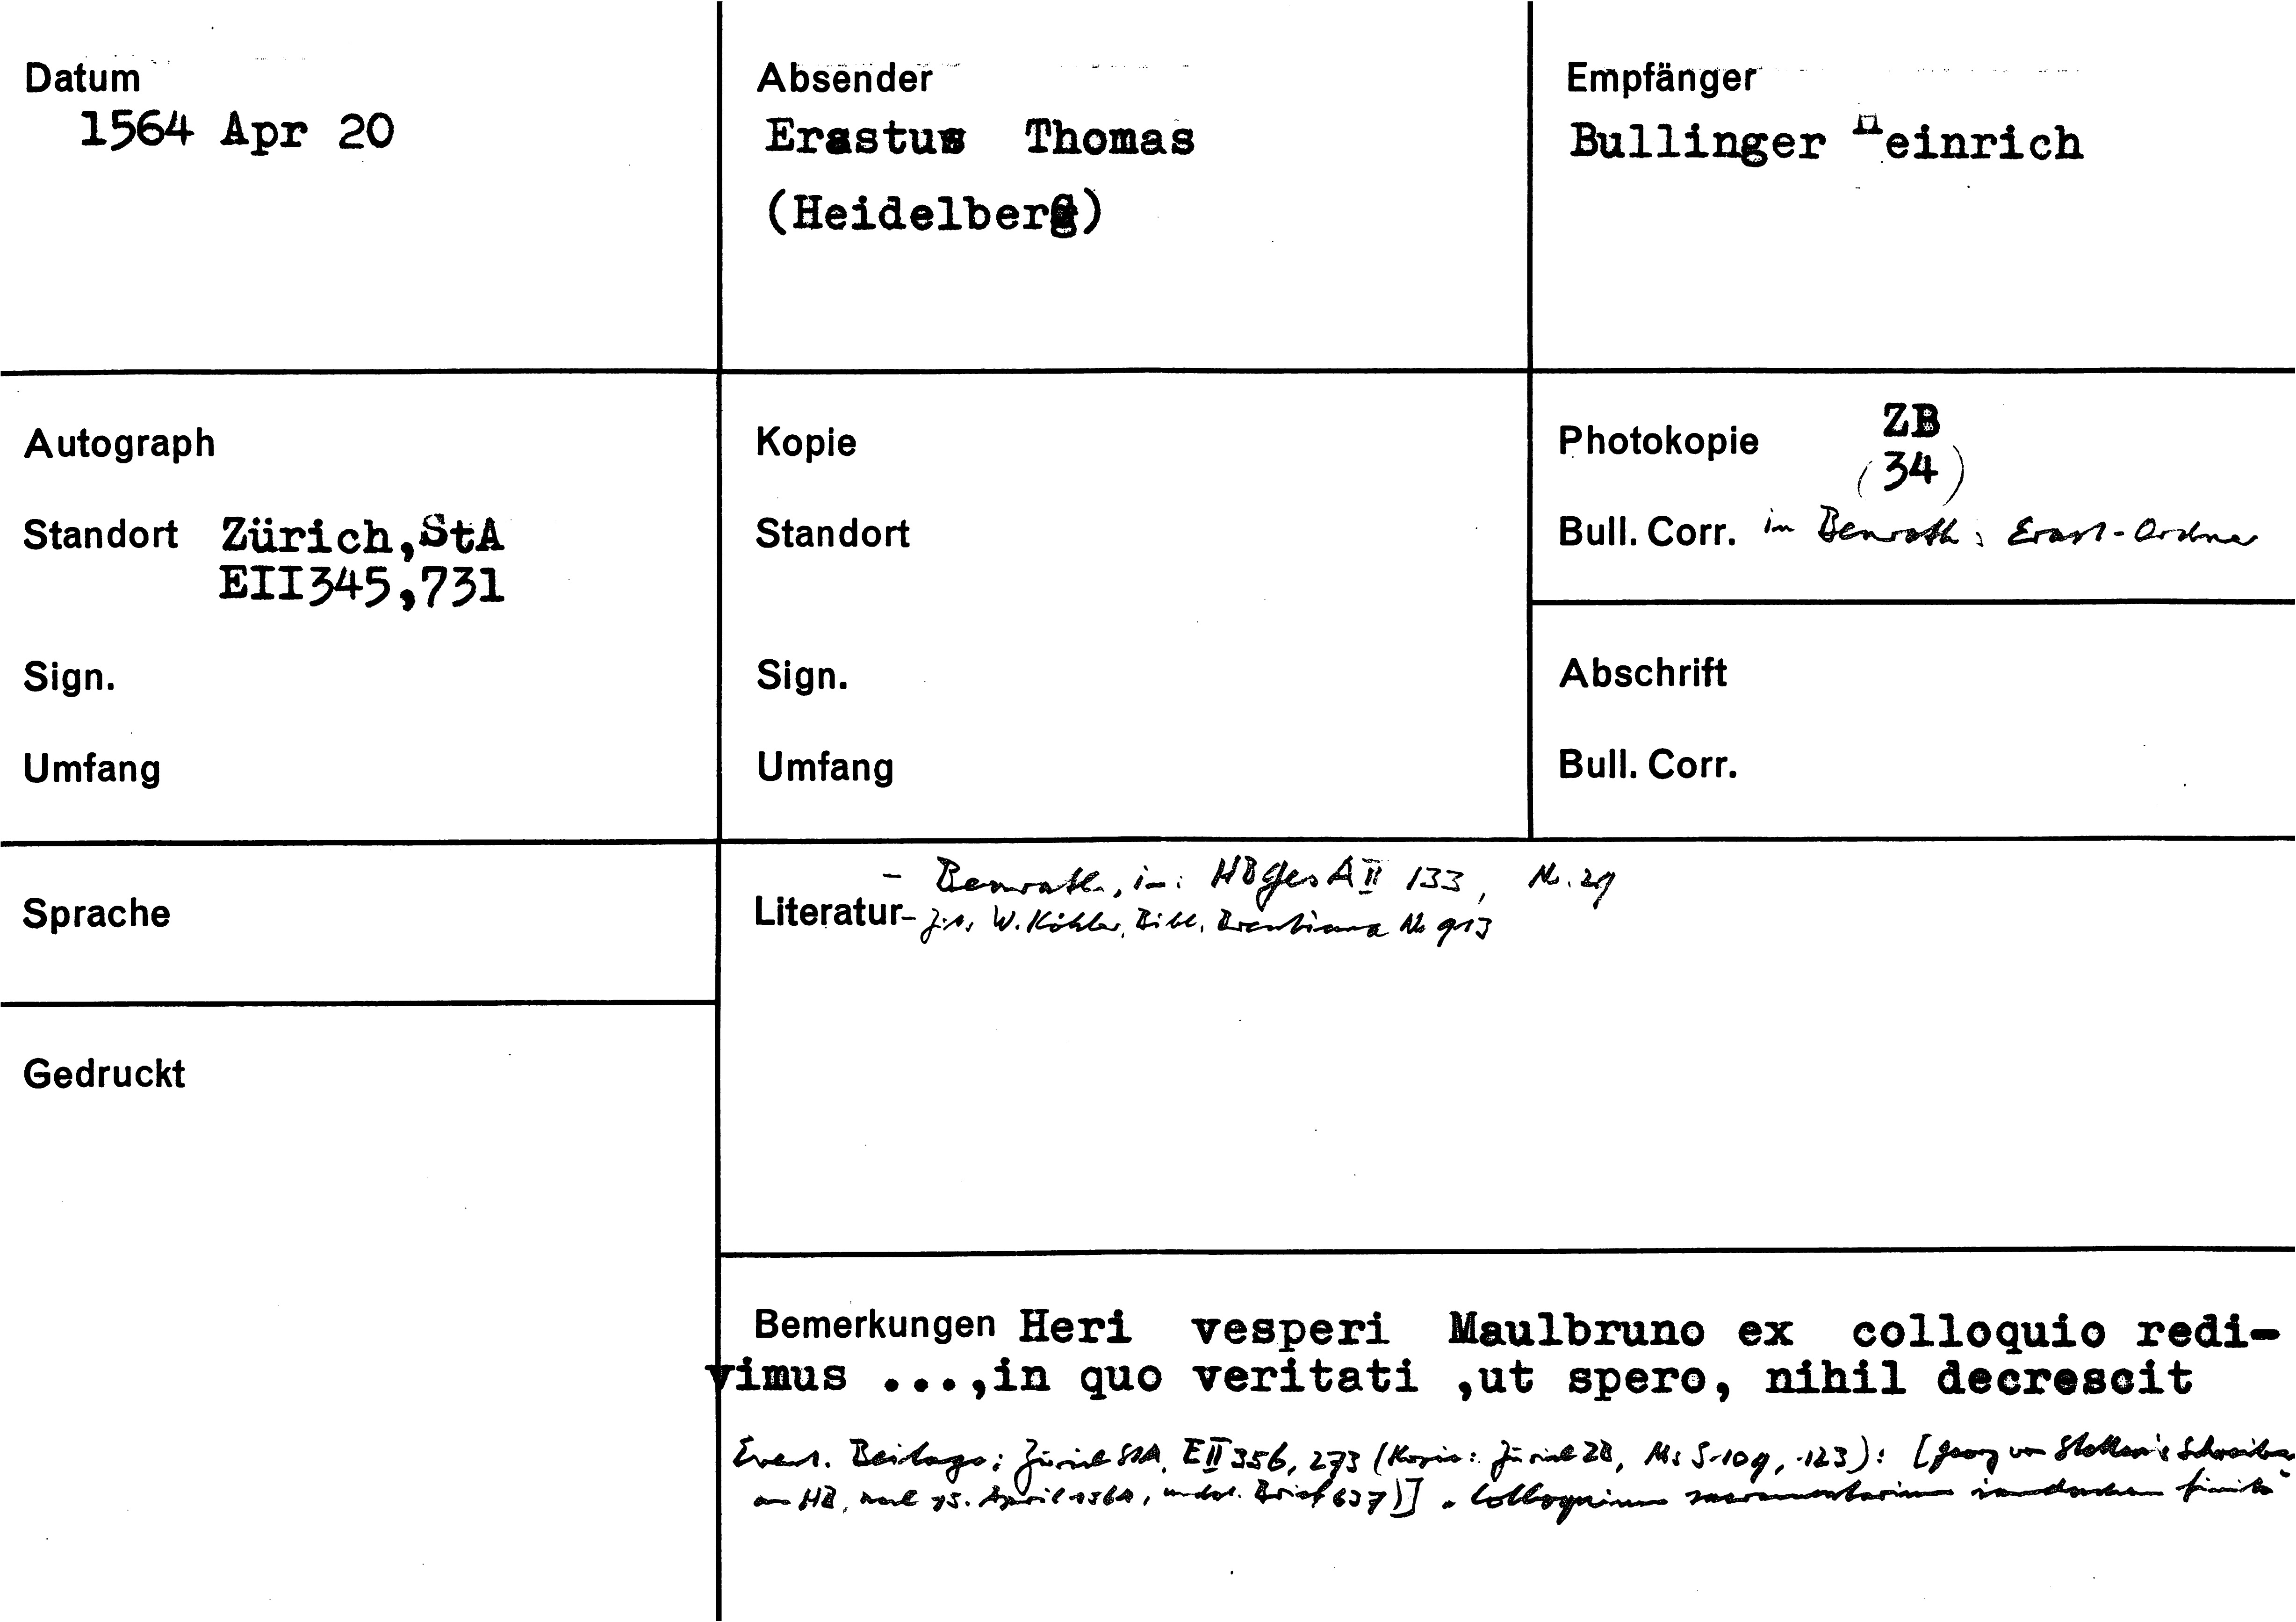 Datum
1564 Apr 20
Absender
Erastus Thomas
(Heidelberg)
Empfänger
Bullinger Heinrich
Autograph
Standort Zürich, StA
EII345,731
Sign.
Umfang
Kopie
Standort
Sign.
Umfang
Photokopie ZB
(34)
Bull. Corr. in Benrath: Erast-Ordner
Abschrift
Bull. Corr.
Sprache
Gedruckt
- Benrath, in: HBGesA II 133, Nr. 29
Literatur - W. Köhler, Bibl. Brentiana Nr 913
Bemerkungen Heri vesperi Maulbruno ex colloquio redi-
vimus ...,in quo veritati ,ut spero, nihil decrescit
Event. Beilage: Zürich StA, E II 356, 273 (Kopie: Zürich ZB, Ms S 109, 123): [Georg von Stetten's Schreiben
an HB, nach 15. April 1564, Brief 637)] "Colloquium sacramentarium finito"